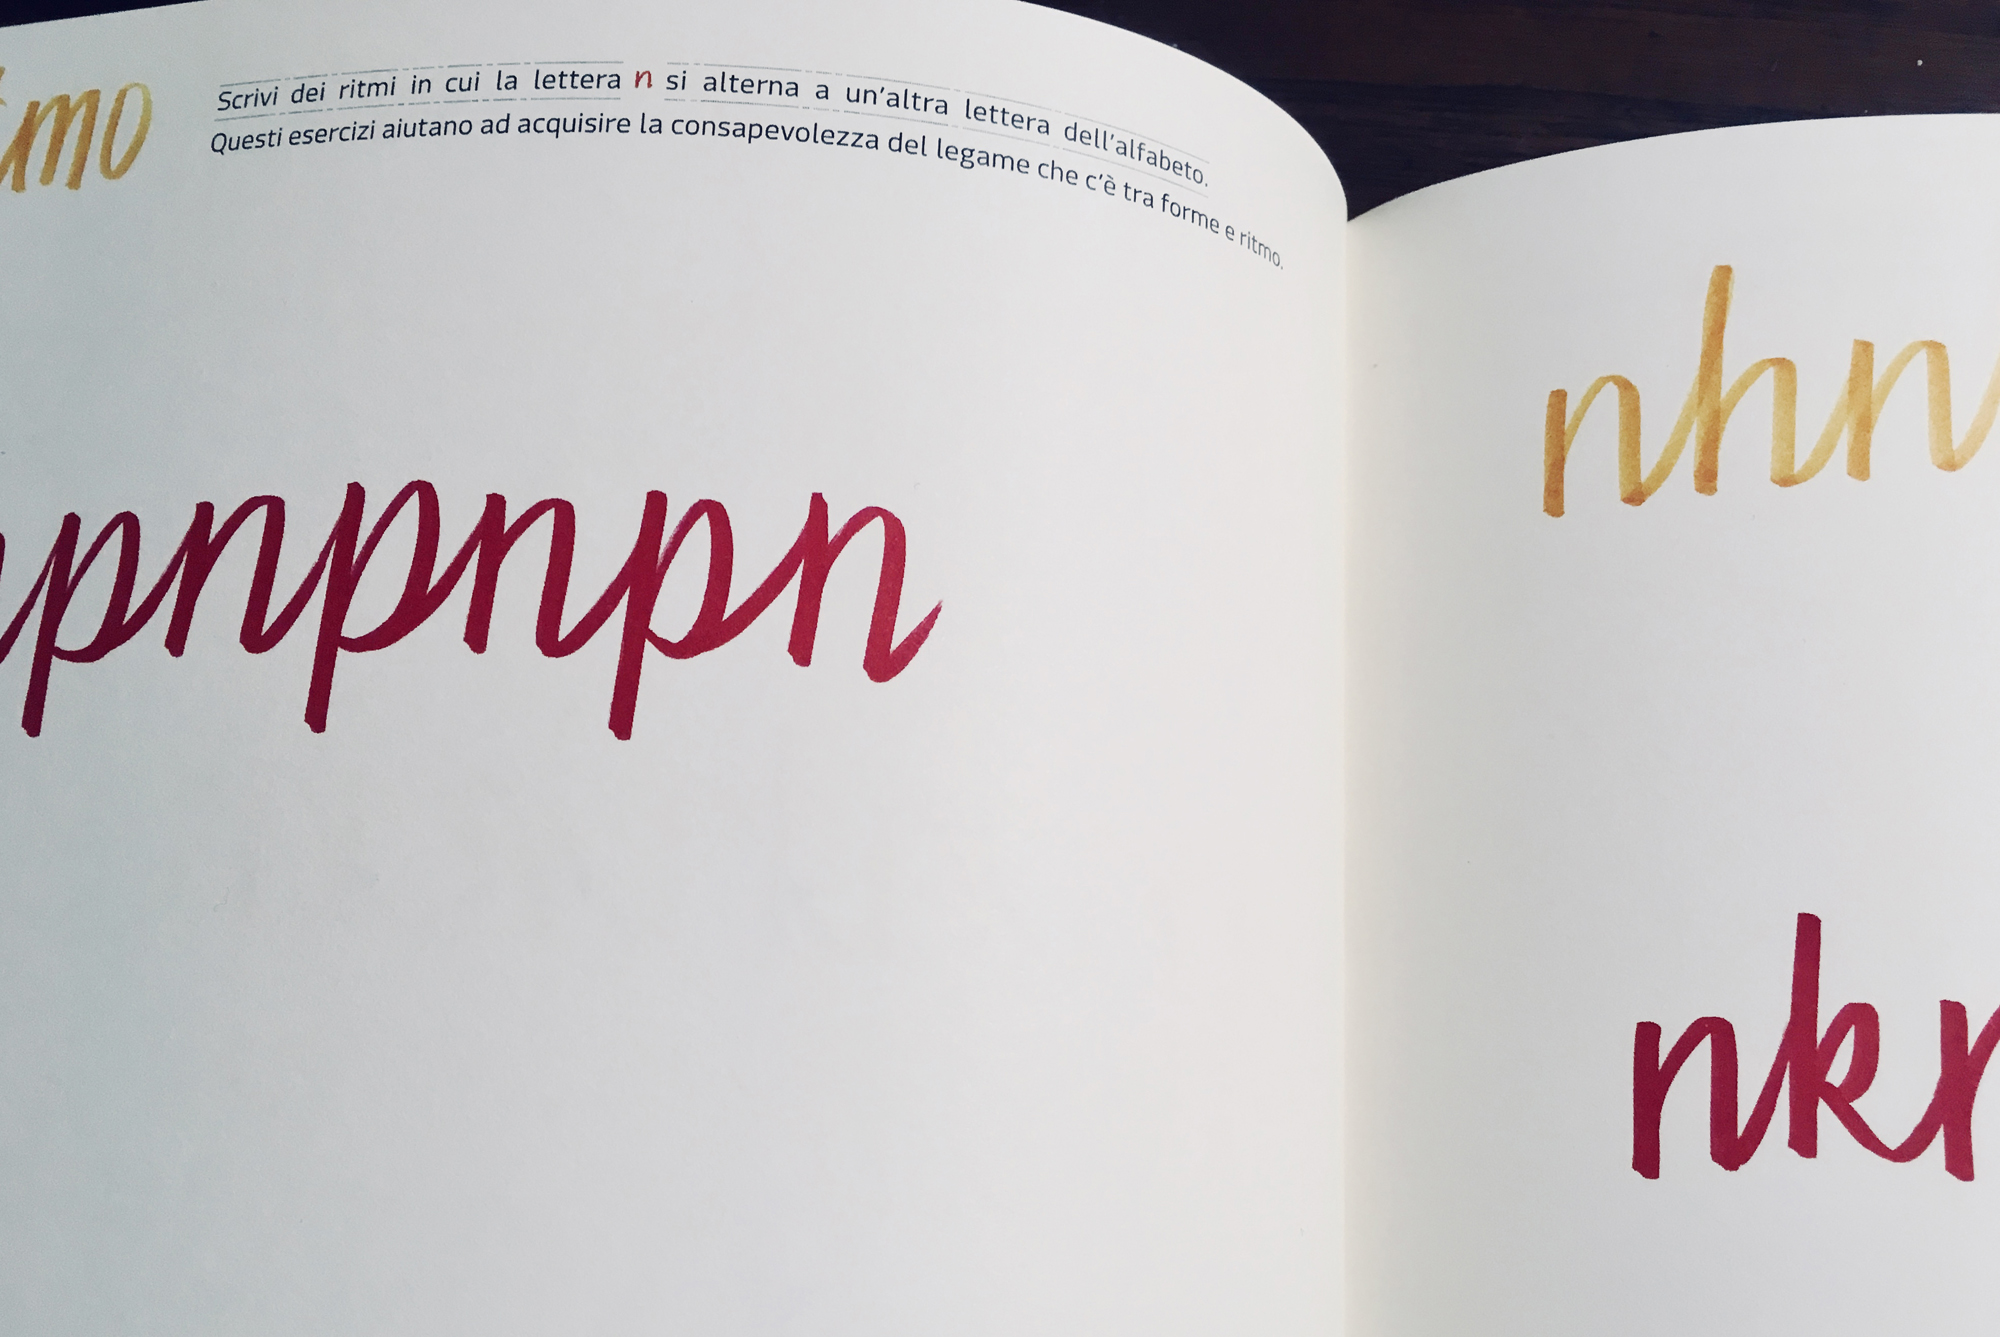 tmo
Scrivi dei ritmi in cui la lettera n si alterna a un'altra lettera dell'alfabeto.
Questi esercizi aiutano ad acquisire la consapevolezza del legame che c'è tra forme e ritmo.
pnpnpn
nhn
nk